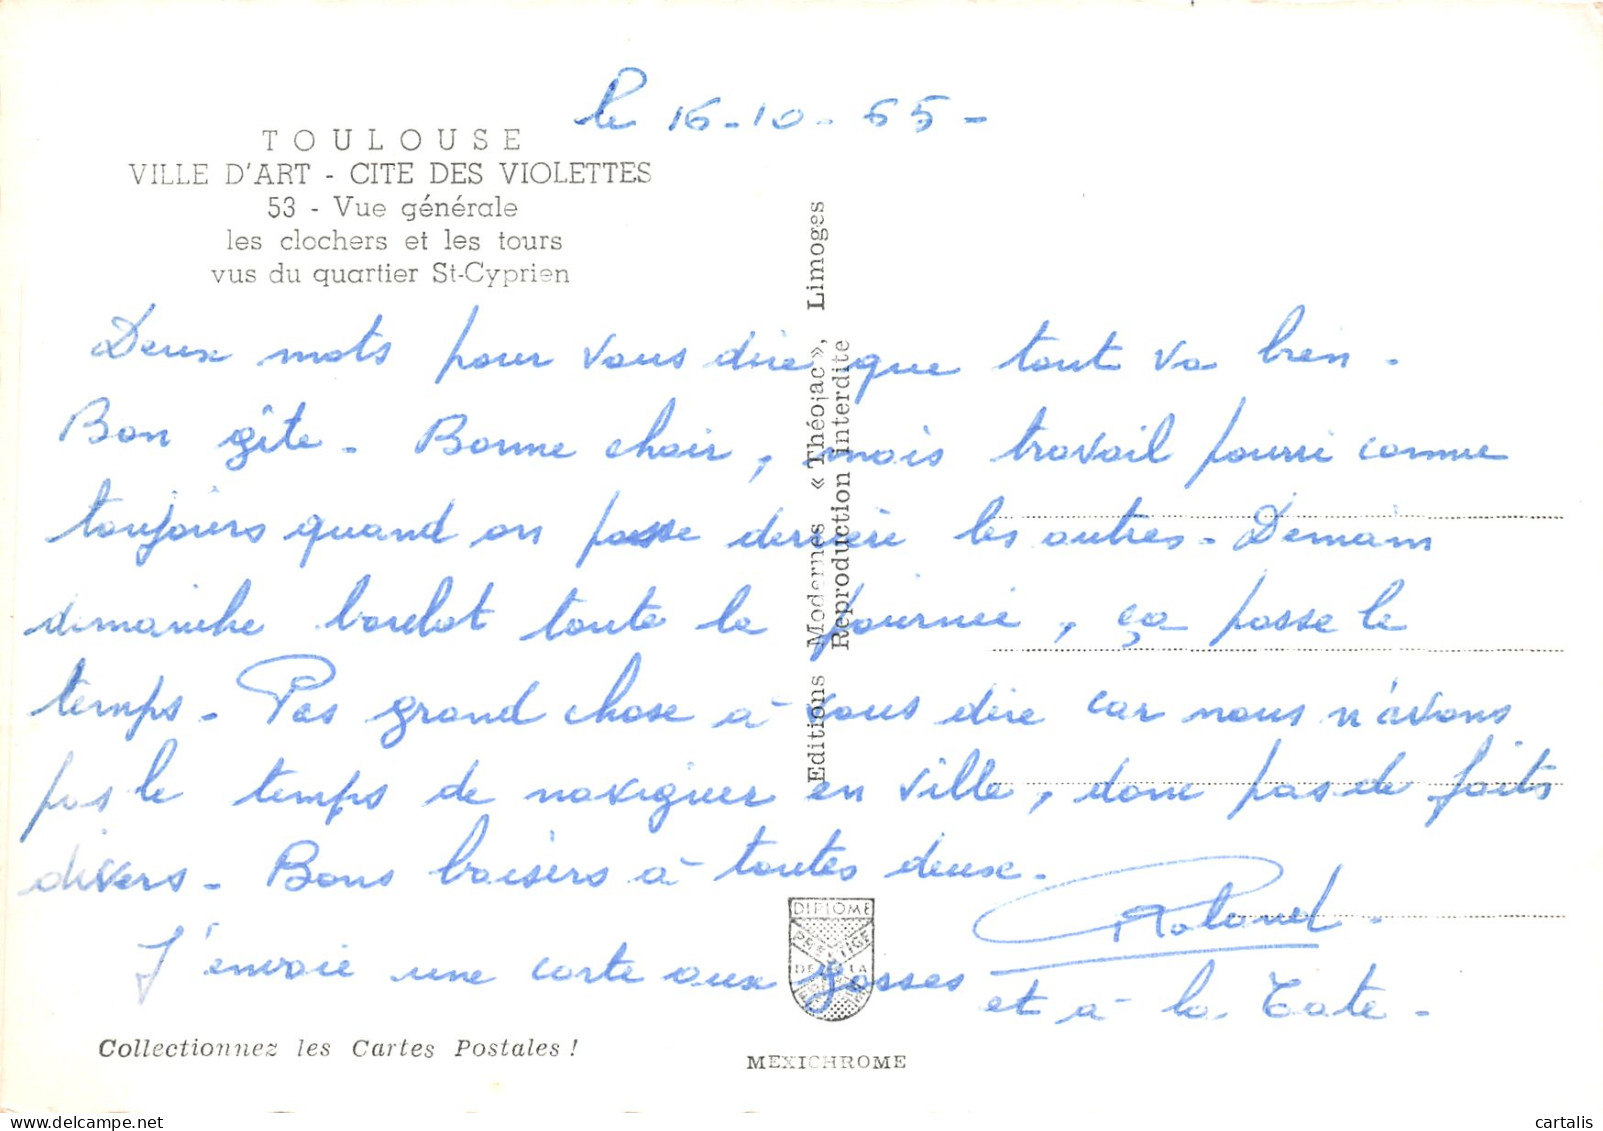 le 16-10-65-
TOULOUSE
VILLE D'ART - CITE DES VIOLETTES
53 - Vue générale
les clochers et les tours
vus du quartier St-Cyprien
Deux mots pour vous dire que tout va bien.
Bon gîte. Bonne chair, mais travail pourri comme
toujours quand on passe derrière les autres. Demain
dimanche boulot toute la journée, ça passe le
temps. Pas grand chose à vous dire car nous n'avons
pas le temps de naviguer en ville, donc pas de faits
divers. Bons baisers à toutes deux.
Roland.
J'envoie une carte aux gosses
et à la Tate.
Editions Modernes « Théojac », Limoges
Reproduction interdite
DIPLOME
PRESTIGE
DE LA
Collectionnez les Cartes Postales !
MEXICHROME
cartalis